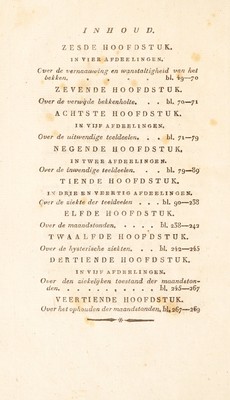 INHOUD.
ZESDE HOOFDSTUK.
IN VIER AFDEELINGEN.
Over de vernaauwing en wanstaltigheid van het
bekken. . . . . bl. 49—70
ZEVENDE HOOFDSTUK.
Over de verwijde bekkenholte. . . bl. 70—71
ACHTSTE HOOFDSTUK.
IN VIJF AFDEELINGEN.
Over de uitwendige teeldeelen. . . bl. 71—79
NEGENDE HOOFDSTUK.
IN TWEE AFDEELINGEN.
Over de inwendige teeldeelen. . . bl. 79—89
TIENDE HOOFDSTUK.
IN DRIE EN VEERTIG AFDEELINGEN.
Over de ziekte der teeldeelen . . . bl. 90—238
ELFDE HOOFDSTUK.
Over de maandstonden. . . . bl. 238—242
TWAALFDE HOOFDSTUK.
Over de hysterische ziekten. . . bl. 242—245
DERTIENDE HOOFDSTUK.
IN VIJF AFDEELINGEN.
Over den ziekelijken toestand der maandston-
den. . . . . . . . . bl. 245—267
VEERTIENDE HOOFDSTUK.
Over het ophouden der maandstonden, bl. 267—269